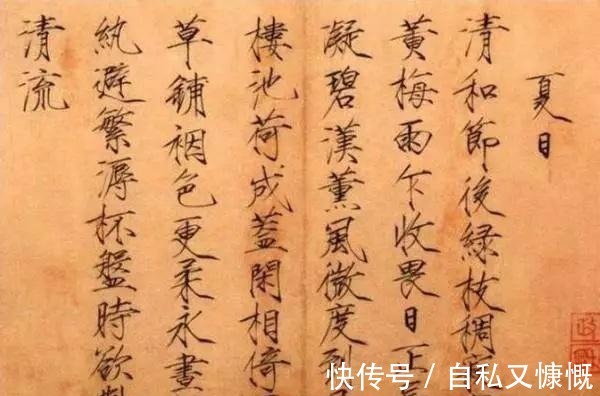 夏日
清和節後綠枝稠
黃梅雨乍收畏日正
凝碧漢薰風微度到
樓池荷成蓋閑相倚
草鋪裀色更柔永晝
紈避繁溽杯盤時欲
清流
快传号 / 自私又慷慨